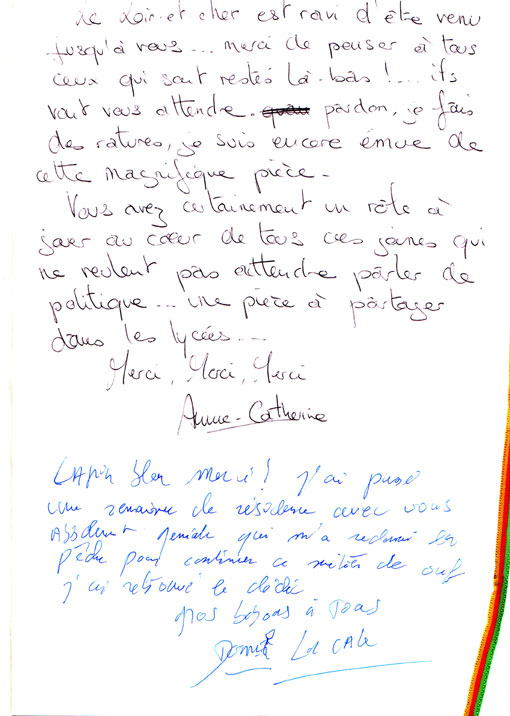 Le Loir-et cher est ravi d'être venu
jusqu'à vous... merci de penser à tous
ceux qui sont restés là-bas !... ils
vont vous attendre. pardon, je fais
des ratures, je suis encore émue de
cette magnifique pièce.
Vous avez certainement un rôle à
jouer au cœur de tous ces jeunes qui
ne veulent pas attendre parler de
politique... une pièce à partager
dans les lycées...
Merci, Merci, Merci
Anne-Catherine
LAPin bleu merci ! j'ai passé
une semaine de résidence avec vous
Absolument geniale qui m'a redonné la
pêche pour continuer ce métier de ouf
j'ai retrouvé le
gros bisous à Tous